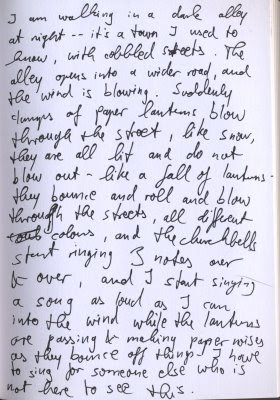 I am walking in a dark alley
at night -- it's a town I used to
know, with cobbled streets. The
alley opens into a wider road, and
the wind is blowing. Suddenly
clumps of paper lanterns blow
through the street, like snow,
they are all lit and do not
blow out - like a fall of lanterns -
they bounce and roll and blow
through the streets, all different
colours, and the church bells
start ringing 3 notes over
& over, and I start singing
a song as loud as I can
into the wind while the lanterns
are passing & making paper noises
as they bounce off things. I have
to sing for someone else who is
not here to see this.